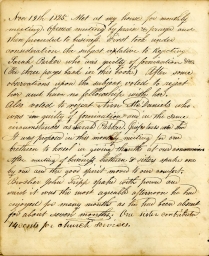 Nov 19th, 1835. Met at my house for monthly
meeting; opened meeting by praise & prayer and
then proceeded to business. First took under
consideration the subject relative to rejecting
Sarah Parker who was guilty of fornication &c
(the three pages back in this book.) After some
observations upon the subject voted to reject
her and have no fellowship with her.
Also voted to reject
who was guilty of fornication and in the same
circumstances as Sarah Parker
It was proposed in this meeting for our
brethren to be in giving thanks at our
After meeting of business brethren & sisters spoke one
by one and the good spirit moved to our comfort.
Brother John spoke with power and
said it was the most agreeable afternoon he had
enjoyed for many months as he had been absent
for about seven months. One sister contributed
cents for church services.